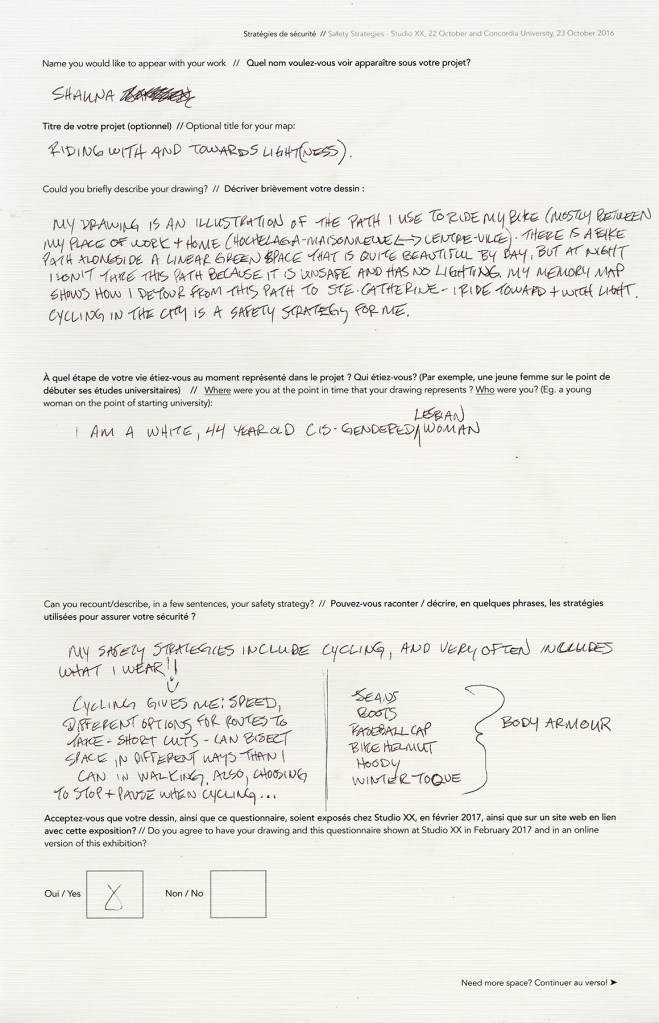 Stratégies de sécurité // Safety Strategies - Studio XX, 22 October and Concordia University, 23 October 2016
Name you would like to appear with your work // Quel nom voulez-vous voir apparaître sous votre projet?
SHAUNA
Titre de votre projet (optionnel) // Optional title for your map:
RIDING WITH AND TOWARDS LIGHT(NESS).
Could you briefly describe your drawing? // Décriver brièvement votre dessin :
MY DRAWING IS AN ILLUSTRATION OF THE PATH I USE TO RIDE MY BIKE (MOSTLY BETWEEN
MY PLACE OF WORK + HOME (HOCHELAGA-MAISONNEUVE <-> CENTRE-VILLE). THERE IS A BIKE
PATH ALONGSIDE A LINEAR GREEN SPACE THAT IS QUITE BEAUTIFUL BY DAY, BUT AT NIGHT
I DON'T TAKE THIS PATH BECAUSE IT IS UNSAFE AND HAS NO LIGHTING. MY MEMORY MAP
SHOWS HOW I DETOUR FROM THIS PATH TO STE. CATHERINE - I RIDE TOWARD + WITH LIGHT.
CYCLING IN THE CITY IS A SAFETY STRATEGY FOR ME.
À quel étape de votre vie étiez-vous au moment représenté dans le projet ? Qui étiez-vous? (Par exemple, une jeune femme sur le point de
débuter ses études universitaires) // Where were you at the point in time that your drawing represents ? Who were you? (Eg. a young
woman on the point of starting university):
LESBIAN
I AM A WHITE, 44 YEAR OLD CIS-GENDERED/WOMAN
Can you recount/describe, in a few sentences, your safety strategy? // Pouvez-vous raconter / décrire, en quelques phrases, les stratégies
utilisées pour assurer votre sécurité ?
MY SAFETY STRATEGIES INCLUDE CYCLING, AND VERY OFTEN INCLUDES
WHAT I WEAR!!
CYCLING GIVES ME: SPEED,
DIFFERENT OPTIONS FOR ROUTES TO
TAKE - SHORT CUTS - CAN BISECT
SPACE IN DIFFERENT WAYS THAN I
CAN IN WALKING. ALSO, CHOOSING
TO STOP + PAUSE WHEN CYCLING...
JEANS
BOOTS
BASEBALL CAP
BIKE HELMUT
HOODY
WINTER TOQUE
BODY ARMOUR
Acceptez-vous que votre dessin, ainsi que ce questionnaire, soient exposés chez Studio XX, en février 2017, ainsi que sur un site web en lien
avec cette exposition? // Do you agree to have your drawing and this questionnaire shown at Studio XX in February 2017 and in an online
version of this exhibition?
Oui / Yes X Non / No
Need more space? Continuer au verso! ➤